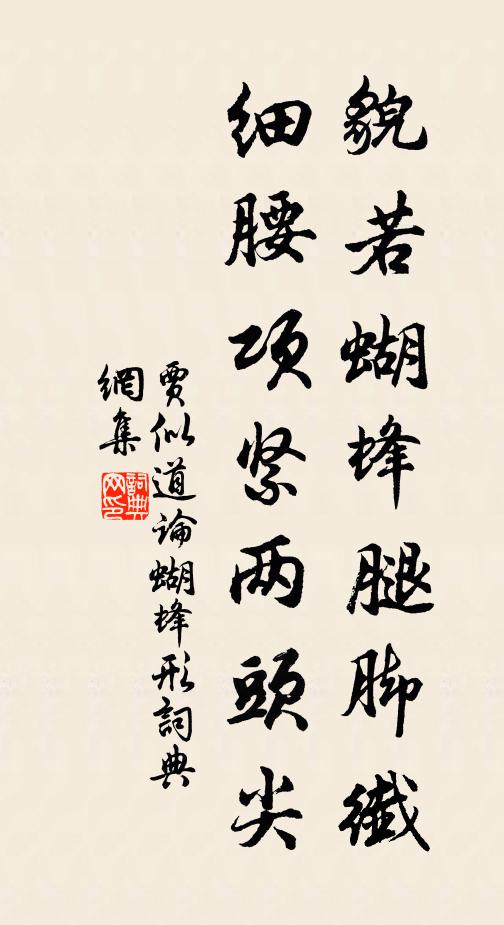 貌若蝴蜂腿脚纖
细腰项紧两頭尖
賈似道論蝴蜂形詞典
網集
詞典
网印